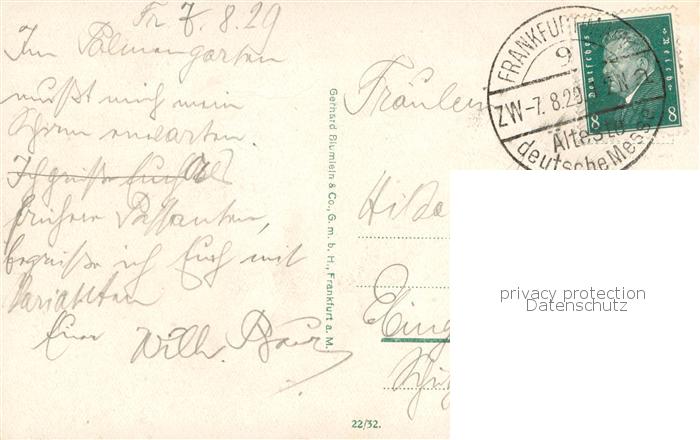 Fr. 7.8.29
Im Palmengarten
mußt mich mein
erwarten.
Ich grüße Euch als
frühere Passanten,
begrüße ich Euch mit
Euer Willi
Gerhard Blümlein & Co., G. m. b. H., Frankfurt a. M.
22/32.
Fräulein
Hilde
FRANKFURT
9
ZW -7. 8. 29
Älteste
deutsche Messe
Deutsches Reich
8 8
privacy protection
Datenschutz